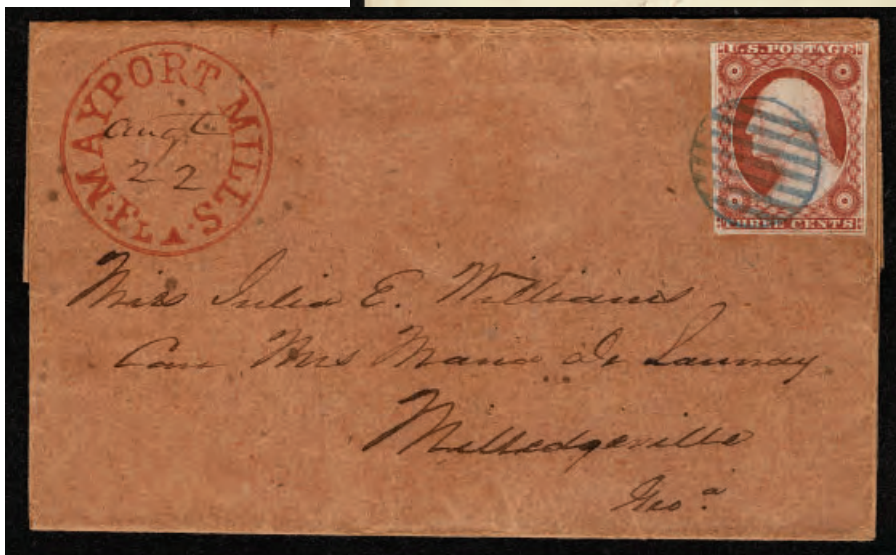 MAYPORT MILLS. Fla.
Augt
22
U.S. POSTAGE
THREE CENTS
Miss Julia E. Williams
Care Mrs Maria De Launay
Milledgeville
Geoa.